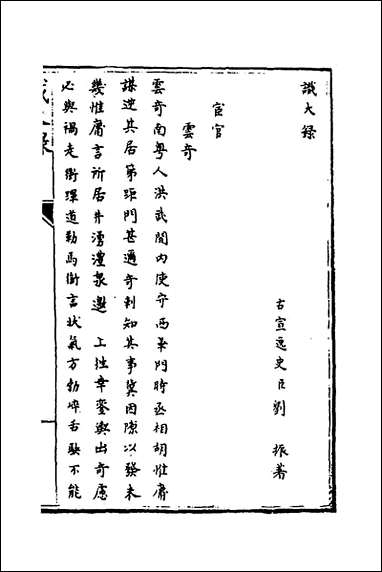 識大錄
古宣逸史臣劉 振著
宦官
雲奇
雲奇南粵人洪武間內使守西華門時丞相胡惟庸
謀逆其居第距門甚邇奇刺知其事冀因隙以發未
幾惟庸言所居井湧澧泉邀 上往幸鑾輿出奇慮
必與禍走衝蹕道勒馬銜言狀氣方勃崒舌駃不能